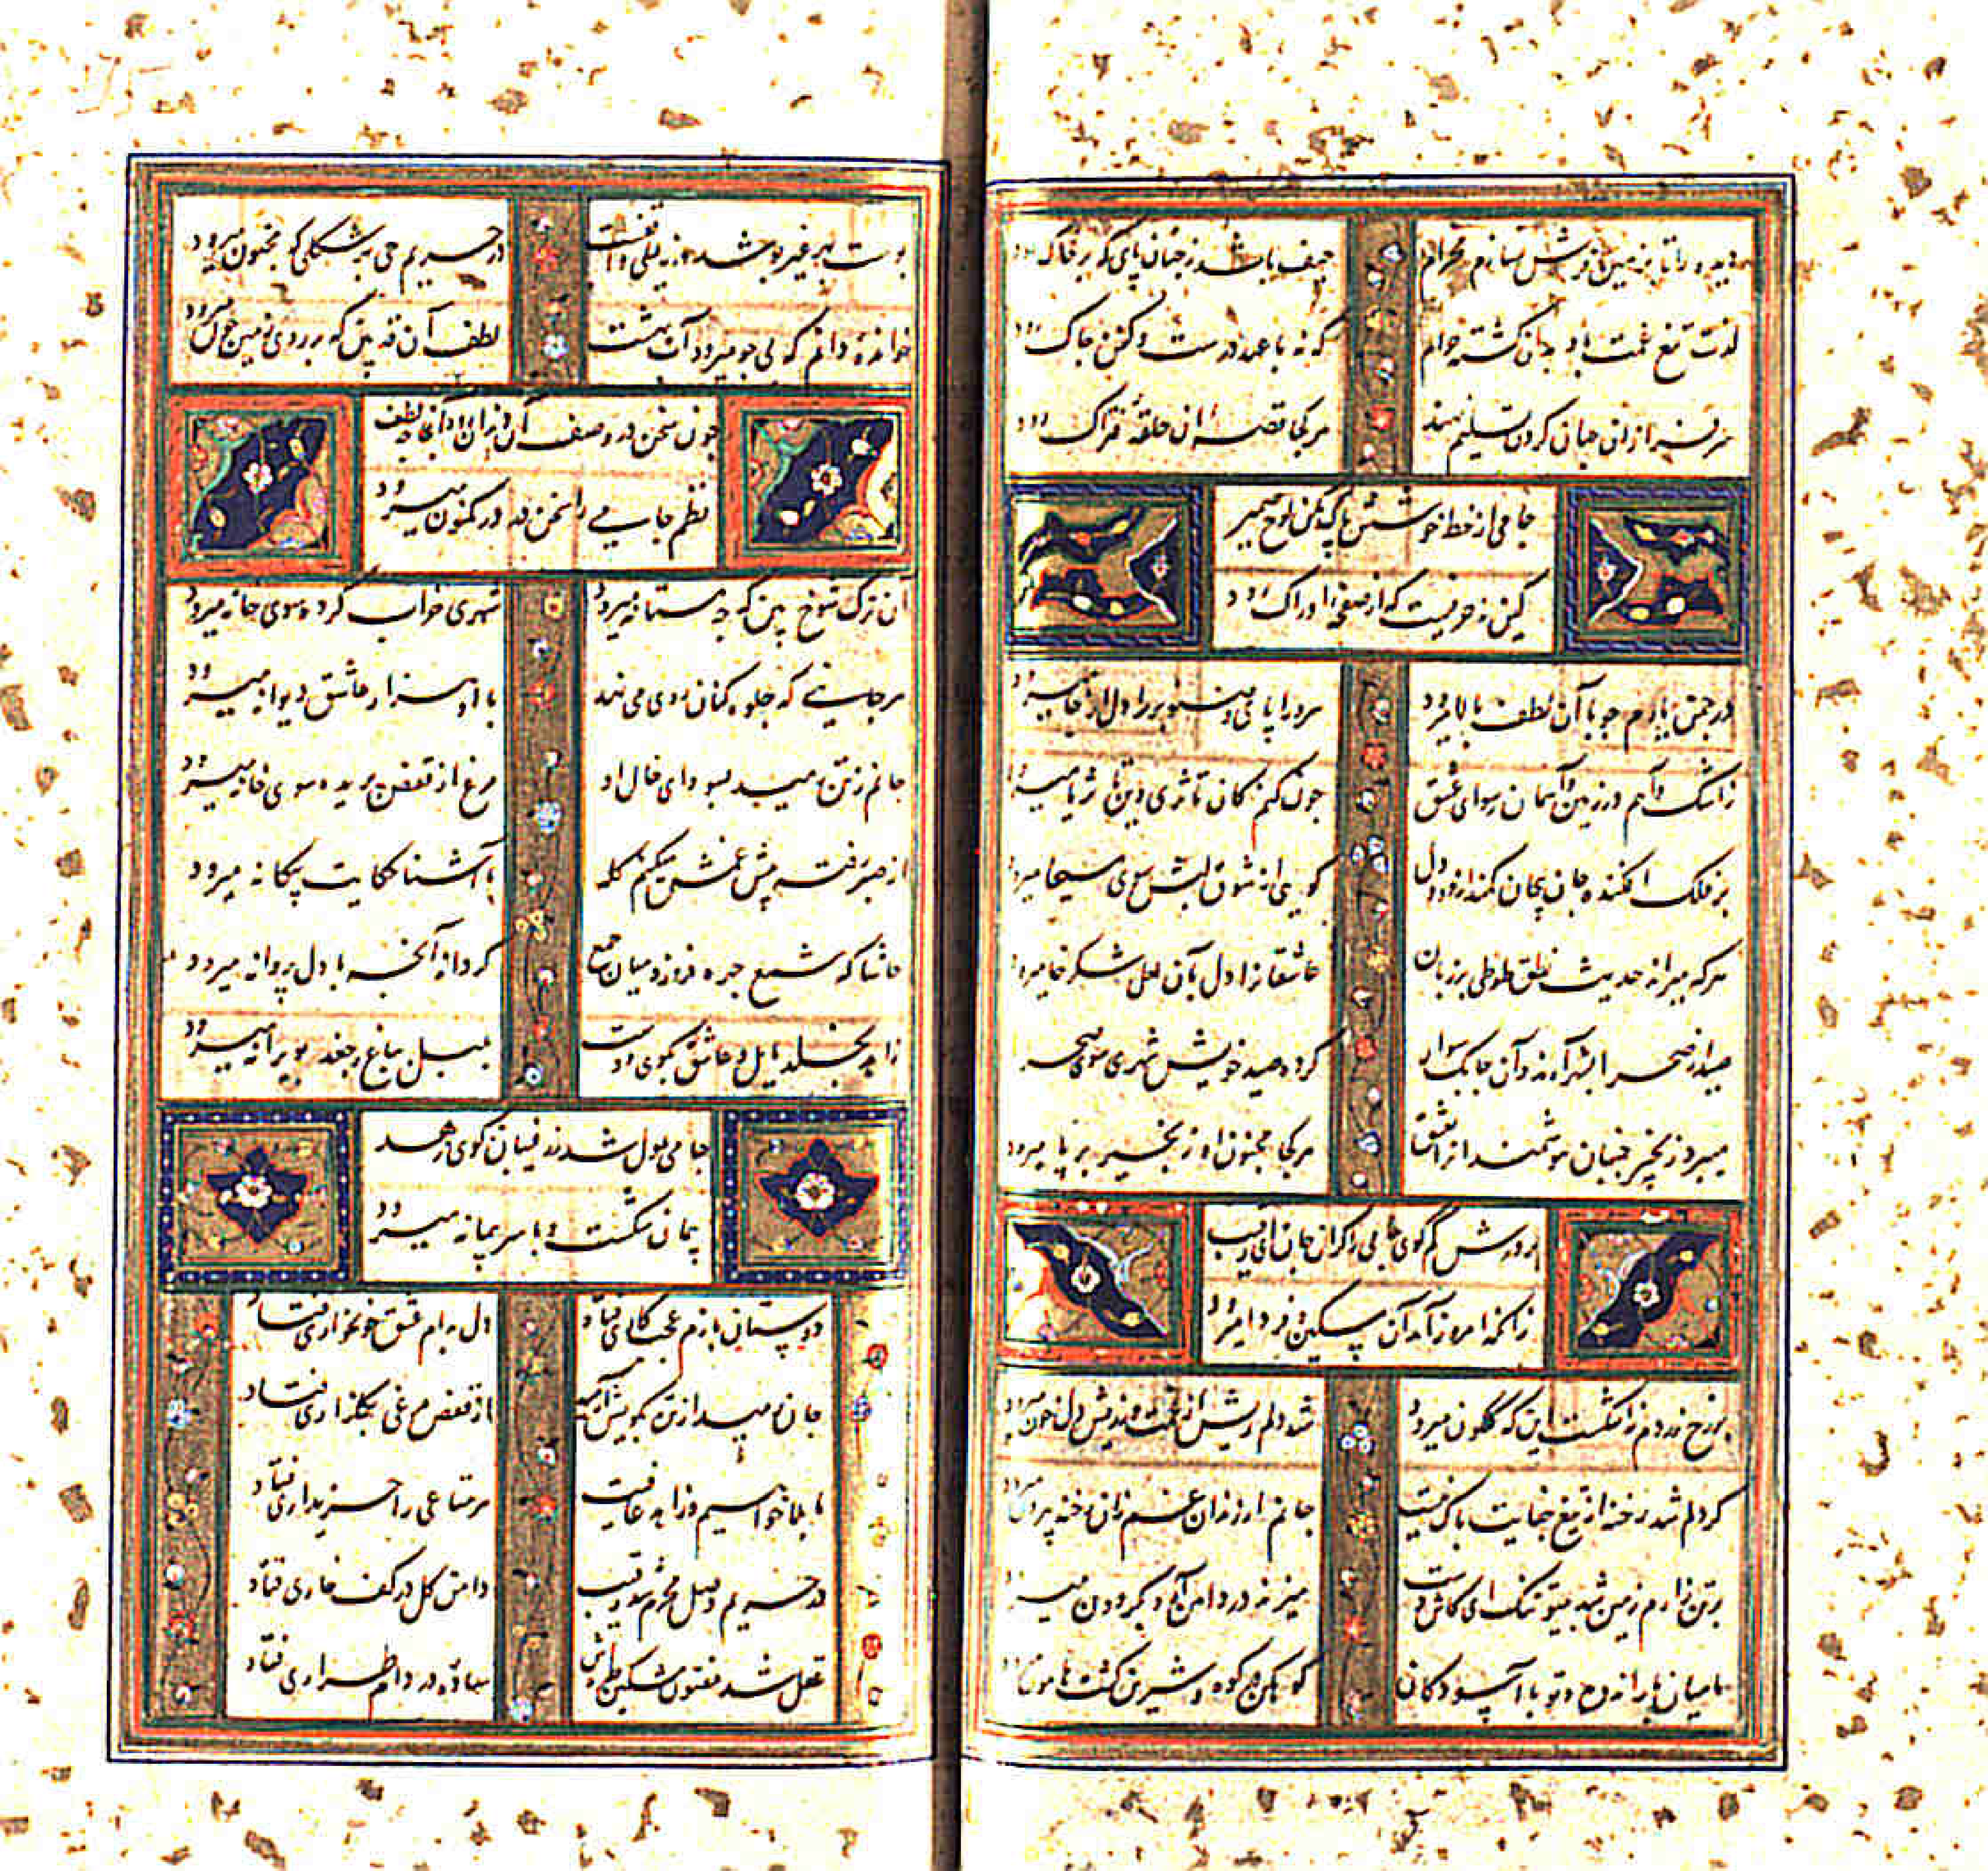 دیده را تا بر زمین فرش سازم محرام حیف باشد زجنان پای که بر خاک رود
لذت تیغ غمت باد بدان کشته حرام که نه با عهد درست و کفن چاک رود
سر نهند از ان جهان کردن تسلیم نهند هر کجا قصه ان حلقه فتراک رود
جامی از خط خوشش پاک مکن لوح ضمیر
کین نه حرفیست که از صفحه ادراک رود
در چمن یادم چو با آن لطف بالا میرود سرو را پا می و صنوبر را دل از جا میرود
زاشک و آهم در زمین و آسمان رسوای عشق چون کنم کان تا ثری وین تا ثریا میرود
بر فلک افکنده جان پیچان کمند از دود دل کویی از شوق لبش سوی مسیحا میرود
هر که میراند حدیث نطق طوطی بر زبان عاشقانرا دل بآن لعل شکرخا میرود
صید از صحرا بشهر آمد وآن چابک سوار کرده صید خویش شهری سوی صحرا
میبرد زنجیر جنبان هوشمند از عشق هر کجا مجنون او زنجیر بر پا میرود
بر درش کم کوی جامی را کران جان ای رقیب
زانکه امروز آمد آن مسکین و فردا میرود
بر رخ زردم نه اشکست این که کلکون میرود شد دلم ریش از غمت وز ریش دل خون میرود
کر دلم شد رخنه از تیغ جفایت باک نیست جانم ار زندان غم زان رخنه بیرون
بر تن زارم زمین شد بیتو تنک ای کاش دست میزند در دامن آه و بکردون میرود
با میان بار اندوه و تو با آسودکان کوهکن در کوه و شیرین کشت هامون میرود
بوست بر غیر پوشد ور نه لیلی واقفست در حریم حی بر شکلی که مجنون میرود
خوانده دانم که بی جو میرود آب بهشت لطف آن قد بین که بر روی زمین چون میرود
چون سخن در وصف آن دندان و آنجا لطف
نظم جامی را سخن در در مکنون میرود
آن ترک شوخ بین که چه مستانه میرود شهری خراب کرده سوی خانه میرود
هر جانبی که جلوه کنان روی می نهد با او هزار عاشق دیوانه میرود
جانم ز تن رمید بسودای خال او مرغ از قفس پریده سوی دانه میرود
از صبر رفته پیش غمش میکنم کله با آشنا حکایت بیکانه میرود
حاشا که شمع چهره فروزد میان جمع کر داند آنچه با دل پروانه میرود
زاهد بخلد مایل و عاشق بکوی دوست بلبل بباغ و جغد بویرانه میرود
جامی ملول شد ز مقیمان کوی زهد
پیمان شکست و با سر پیمانه میرود
دوستان بازم عجب کاری فتاد دل بدام عشق خونخواری فتاد
جان رمید از تن بکویش آرمید از قفس مرغی بکلزاری فتاد
ما بلا خواهیم و زاهد عافیت هر متاعی را خریداری فتاد
در حریم وصل محرم شد رقیب دامن کل در کف خاری فتاد
عقل شد مفتون مشکین طره اش ساده در دام طراری فتاد